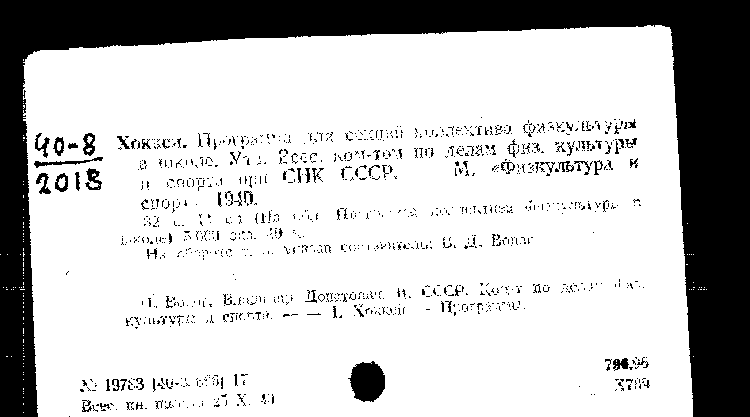 40-8
2018
Хоккей. Программа для секций коллектива физкультуры
в школе. Утв. Всес. ком-том по делам физ. культуры
и спорта при СНК СССР. М. «Физкультура и
спорт», 1940.
32 с. (На обл.: Программа коллектива физкультуры в
школе) 5000 экз.
На обороте тит. указан составитель: В. Д.
I. Владимир II. СССР. Ком-т по делам физ.
культуры и спорта. — — 1. Хоккей - Программы.
№ 19783 [40- ] 17
Всес. кн. палата 25 X. 40
796.96
Х789